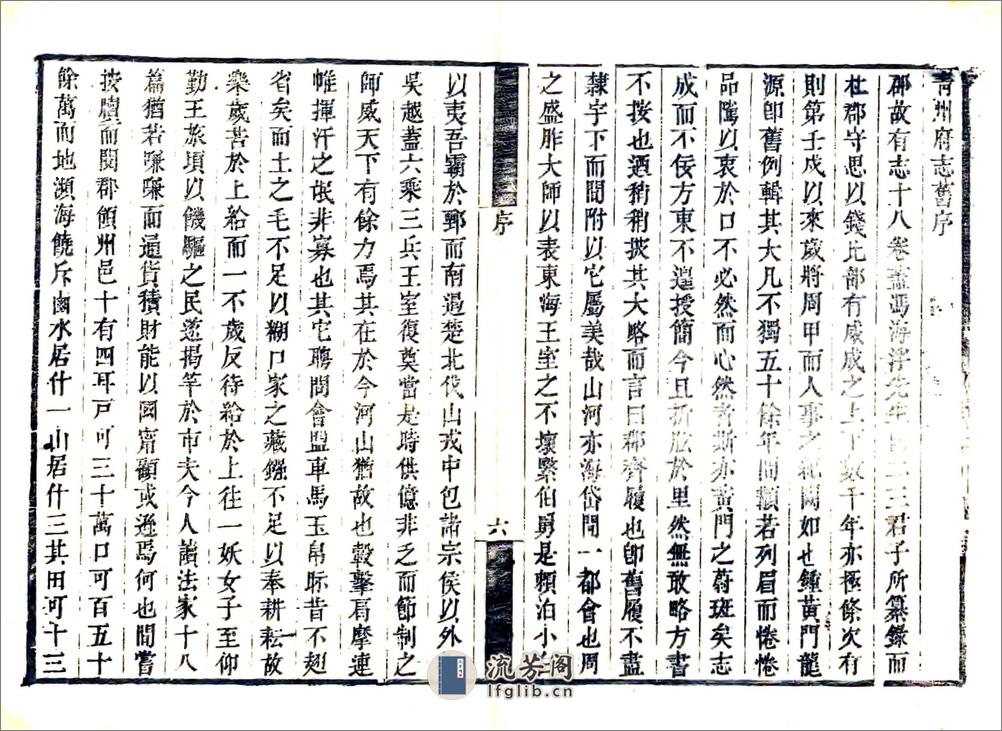 青州府志舊序
郡故有志十八卷蓋馮海浮先生 二三君子所纂錄而
杜郡守思以錢比部有威成之上下數千年亦極條次有
則第壬戌以來歲將周甲而人事之紀闕如也鍾黃門龍
源卽舊例輯其大凡不獨五十餘年間類若列眉而惓惓
品隲以衷於口不必然而心然者斯亦黃門之蔚斑矣志
成而不佞方東不遑授簡今且祈 於里然無敢略方書
不按也迺稍稍披其大略而言曰郡齊履也卽舊履不盡
隸宇下而間附以它屬美哉山河亦海岱間一都會也周
之盛胙大師以表東海王室之不壞繄伯舅是賴洎小
序
六
以夷吾霸於鄄而南遏楚北伐山戎中包諸宗侯以外
吳越蓋六乘三兵王室復奠當是時供億非乏而節制之
師威天下有餘力焉其在於今河山猶故也轂擊肩摩連
帷揮汗之氓非寡也其它聘問會盟車馬玉帛眎昔不翅
省矣而土之毛不足以糊口家之藏鏹不足以奉耕耘故
樂歲苦於上給而一不歲反待給於上往一妖女子至仰
勤王旅頃以饑驅之民遂揭竿於市夫今人諳法家十八
篇猶若嗛嗛而通貨積財能以國甯顧或遜焉何也間嘗
按牘而閱郡領州邑十有四耳戸可三十萬口可百五十
餘萬而地瀕海饒斥鹵水居什一山居什三其田可十三
流芳阁
lfglib.cn